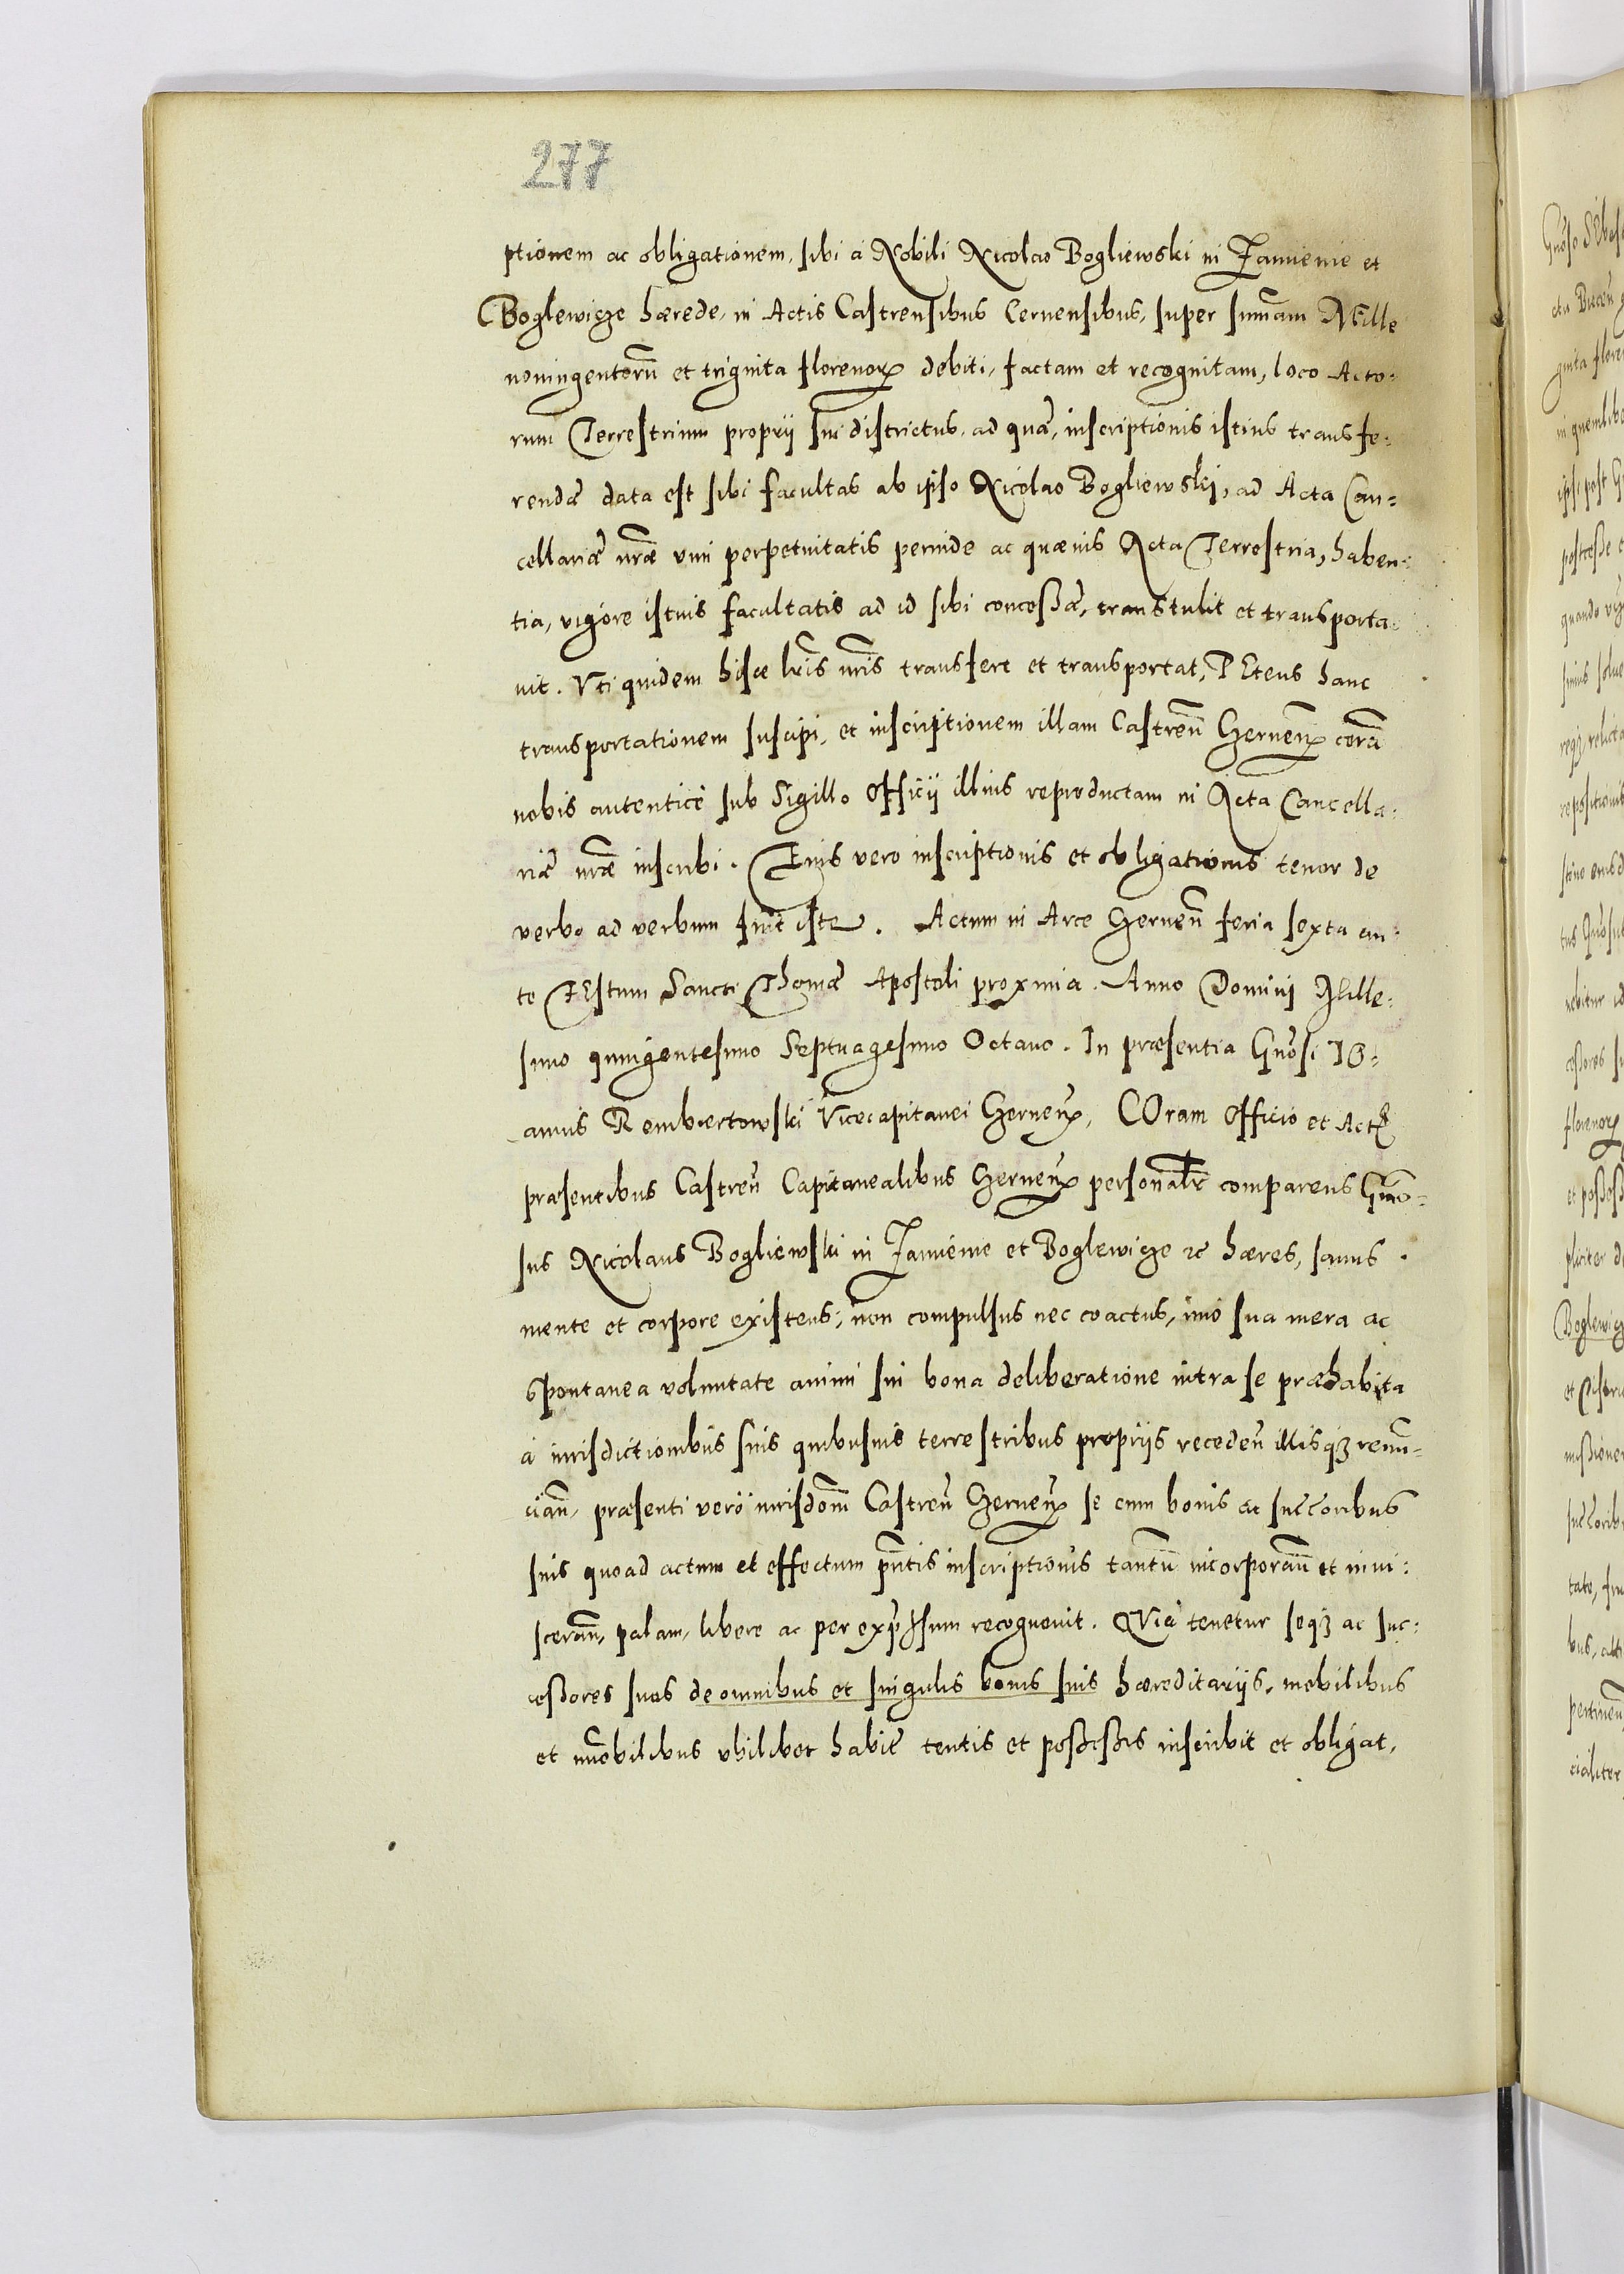 277
ptionem ac obligationem, sibi à Nobili Nicolao Bogliewski in Janienie et
Boglewicze hærede, in Actis Castrensibus Cernensibus, super sum̃am Mille
noningentorũ et triginta florenorꝝ debiti, factam et recognitam, loco Acto:
rum Terrestrium proprij sui districtus, ad quæ, inscriptionis istius transfe:
rendæ data est sibi facultas ab ipso Nicolao Bogliewskj, ad Acta Can:
cellariæ nr̃æ vim perpetuitatis perinde ac quæuis Acta Terrestria, haben:
tia, vigore istuis facultatis ad id sibi conceßæ, transtulit et transporta:
uit. Vti quidem hisce lr̃is nr̃is transfert et transportat, PEtens hanc
transportationem suscipi, et inscriptionem illam Castreñ Czerneñ corã
nobis autenticè sub Sigillo Officij illius reproductam in Acta Cancella:
riæ nr̃æ inscribi. Cuius vero inscriptionis et obligationis tenor de
verbo ad verbum fuit iste. Actum in Arce Czerneñ feria sexta an:
te FEstum Sancti Thomæ Apostoli proxima. Anno Dominj Mille:
simo quingentesimo Septuagesimo Octauo. In præsentia Gñosi IO:
annis Rembertowski Vicecapitanei Czerneñ, COram Officio et Actꝭ
præsentibus Castreñ Capitanealibus Czerneñ personalr̃ comparens Gñro:
sus Nicolaus Bogliewski in Janienie et Boglewicze ꝛc hæres, sanus
mente et corpore existens, non compulsus nec coactus, imò sua mera ac
spontanea voluntate animi sui bona deliberatione intra se præhabita
à iurisdictionibus suis quibusuis terrestribus proprijs recedeñ illisqꝫ renũ:
ciañ, præsenti verò iurisdom̃ Castreñ Czerneñ se cum bonis ac succoribus
suis quoad actum et effectum pñtis inscriptionis tantũ incorporañ et inui:
scerañ, palam, libere ac per expressum recognouit. QVia tenetur seqꝫ ac suc:
ceßores suos de omnibus et singulis bonis suis hæreditarijs, mobilibus
et im̃obilibus vbilibet habitꝭ tentis et poßeßis inscribit et obligat,